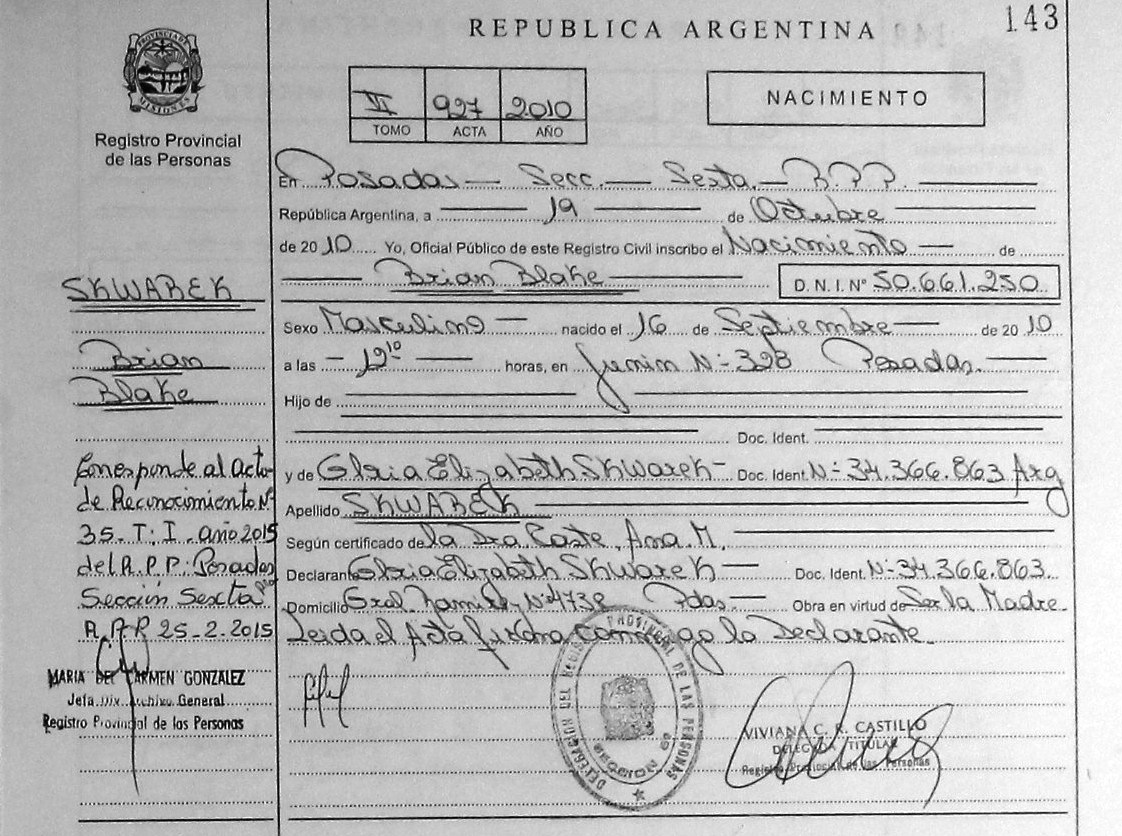 REPUBLICA ARGENTINA
143
PROVINCIA DE MISIONES
Registro Provincial
de las Personas
VI 927 2010
TOMO ACTA AÑO
NACIMIENTO
En Posadas Secc. Sesta. R.P.P.
República Argentina, a 19 de Octubre
de 2010 Yo, Oficial Público de este Registro Civil inscribo el Nacimiento de
Brian Blake D.N.I.Nº 50.661.250
Sexo Masculino nacido el 16 de Septiembre de 2010
a las 12 10 horas, en Junin Nº 328 Posadas.
Hijo de
Doc. Ident.
y de Gloria Elizabeth Skwarek Doc. Ident. Nº 34.366.863 Arg
Apellido SKWAREK
Según certificado de la Dra. Ana. M.
Declarante Gloria Elizabeth Skwarek Doc. Ident. Nº 34.366.863
Domicilio Gral. Ramirez Nº 4738 Pdas. Obra en virtud de Ser la Madre
Leida el Acta firma conmigo la Declarante
SKWAREK
Brian
Blake
Corresponde al Acta
de Reconocimiento Nº
35. T: I. año 2015
del R.P.P. Posadas
Sección Sexta
25-2-2015
MARIA DEL CARMEN GONZALEZ
Jefa Div. Archivo General
Registro Provincial de las Personas
DELEGACION DEL REGISTRO PROVINCIAL DE LAS PERSONAS
SECCION 6ª
VIVIANA C. R. CASTILLO
DELEGADA TITULAR
Registro Provincial de las Personas